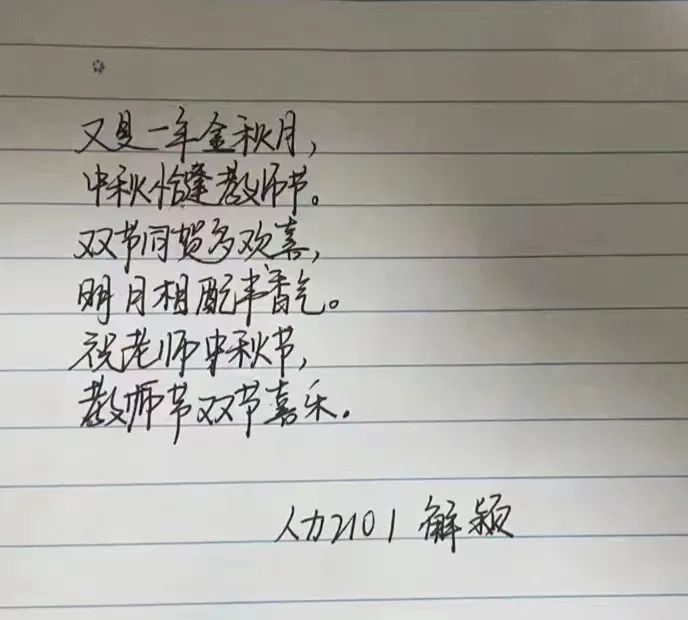 又是一年金秋月，
中秋恰逢教师节。
双节同贺多欢喜，
明月相配丰香气。
祝老师中秋节，
教师节双节喜乐.
人力2101 解颖